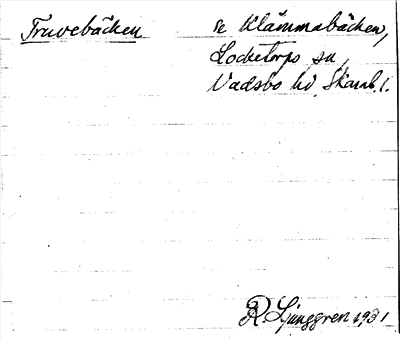 Truvebäcken se Klämmabäcken,
Locketorps sn,
Vadsbo hd, Skarab. l.
R. Ljunggren 1931